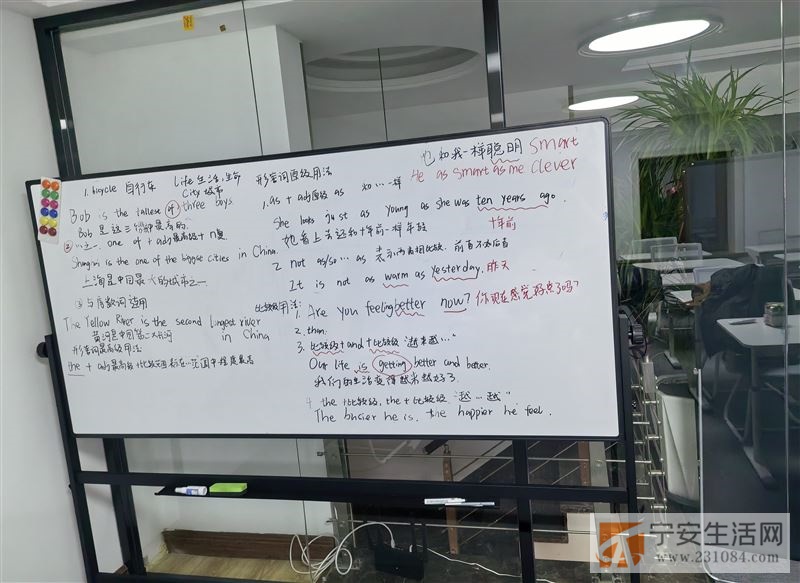 1. bicycle 自行车
Life 生活,生命
City 城市
Bob is the tallest of three boys
Bob是这三个中最高的.
② …之一. one of + adj最高级+n复.
Shanghai is the one of the biggest cities in China.
上海是中国最大的城市之一.
③ 与序数词连用
The Yellow River is the second longest river
in China
黄河是中国第二大河
形容词最高级用法
the + adj最高级+比较范围
形容词原级用法
1. as + adj原级 as 和…一样
She looks just as young as she was ten years ago.
她看上去还和十年前一样年轻
十年前
2 not as/so… as 表示两者相比较. 前者不如后者
It is not as warm as yesterday. 昨天
比较级用法:
1. Are you feeling better now? 你现在感觉好点了吗?
2. than.
3. 比较级+and+比较级 "越来越…"
Our life is getting better and better.
我们的生活变得越来越好了.
4 the +比较级, the + 比较级 "越…越"
The busier he is, the happier he feel.
他和我一样聪明 smart
He as smart as me clever
宁安生活网
www.231084.com